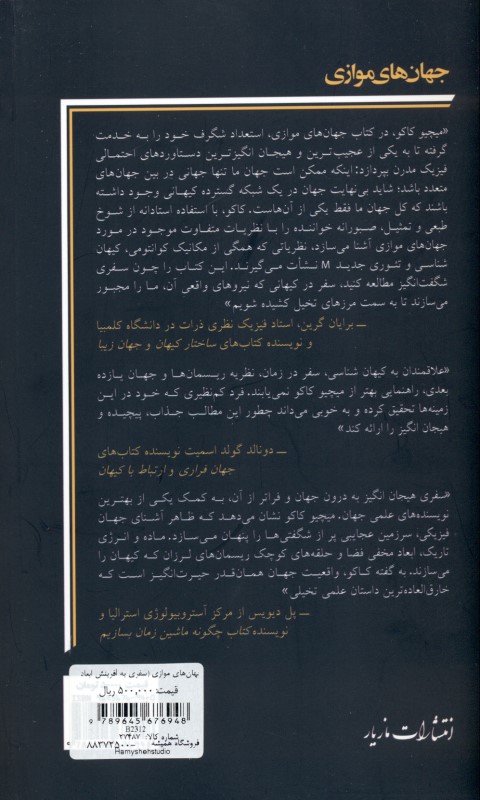 جهان‌های موازی
«میچیو کاکو، در کتاب جهان‌های موازی، استعداد شگرف خود را به خدمت
گرفته تا به یکی از عجیب‌ترین و هیجان انگیزترین دستاوردهای احتمالی
فیزیک مدرن بپردازد: اینکه ممکن است جهان ما تنها جهانی در بین جهان‌های
متعدد باشد؛ شاید بی‌نهایت جهان در یک شبکه گسترده کیهانی وجود داشته
باشند که کل جهان ما فقط یکی از آن‌هاست. کاکو، با استفاده استادانه از شوخ
طبعی و تمثیل، صبورانه خواننده را با نظریات متفاوت موجود در مورد
جهان‌های موازی آشنا می‌سازد. نظریاتی که همگی از مکانیک کوانتومی، کیهان
شناسی و تئوری جدید M نشأت می‌گیرند. این کتاب را چون سفری
شگفت‌انگیز مطالعه کنید، سفر در کیهانی که نیروهای واقعی آن، ما را مجبور
می‌سازند تا به سمت مرزهای تخیل کشیده شویم»
ــ برایان گرین، استاد فیزیک نظری ذرات در دانشگاه کلمبیا
و نویسنده کتاب‌های ساختار کیهان و جهان زیبا
«علاقمندان به کیهان شناسی، سفر در زمان، نظریه ریسمان‌ها و جهان یازده
بعدی، راهنمایی بهتر از میچیو کاکو نمی‌یابند. فرد کم‌نظیری که خود در این
زمینه‌ها تحقیق کرده و به خوبی می‌داند چطور این مطالب جذاب، پیچیده و
هیجان انگیز را ارائه کند»
ــ دونالد گولد اسمیت نویسنده کتاب‌های
جهان فراری و ارتباط با کیهان
«سفری هیجان انگیز به درون جهان و فراتر از آن، به کمک یکی از بهترین
نویسنده‌های علمی جهان. میچیو کاکو نشان می‌دهد که ظاهر آشنای جهان
فیزیکی، سرزمین عجایبی پر از شگفتی‌ها را پنهان می‌سازد. ماده و انرژی
تاریک، ابعاد مخفی فضا و حلقه‌های کوچک ریسمان‌های لرزان که کیهان را
می‌سازند. به گفته کاکو، واقعیت جهان همان‌قدر حیرت‌انگیز است که
خارق‌العاده‌ترین داستان علمی تخیلی»
ــ پل دیویس از مرکز آستروبیولوژی استرالیا و
نویسنده کتاب چگونه ماشین زمان بسازیم
جهان‌های موازی (سفری به آفرینش ابعاد
قیمت: ۵۰۰,۰۰۰ ریال
9 789645 676948
B2312
شماره کالا: ۲۷۴۸۷
فروشگاه همیشه ۸۸۳۷۲۵۰۰-۰
Hamyshehstudio
انتشارات مازیار